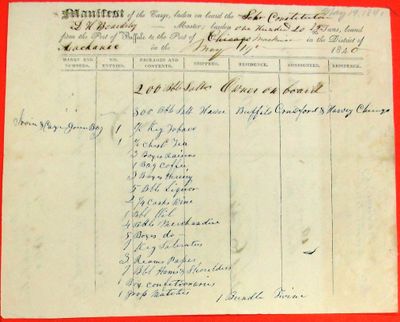 May 19, 1840
Manifest of the Cargo, laden on board the Schr Constitution
Master, burden One Hundred 20 Tons, bound
from the Port of Buffalo to the Port of Chicago in the District of
Mackanac in the May 19 1840
MARKS AND NUMBERS. NO. ENTRIES. PACKAGES AND CONTENTS. SHIPPERS. RESIDENCE. CONSIGNEES. RESIDENCE.
200 Bbl Salt Owner on board
300 Bbls Salt Buffalo Crawford & Harvey Chicago
Green Bay 1 ½ Keg Tobaco
1 ½ Chest Tea
2 Boxes Raisins
1 Bag Coffee
3 Boxes Herring
5 Bbls Liquor
2 ¼ Casks Wine
1 Bbl Oil
4 Bbls Merchandise
5 Boxes do
1 Keg Saleratus
3 Reams Paper
7 Bbl Hams & Shoulders
1 Box confectionaries
1 Matches 1 Bundle Twine